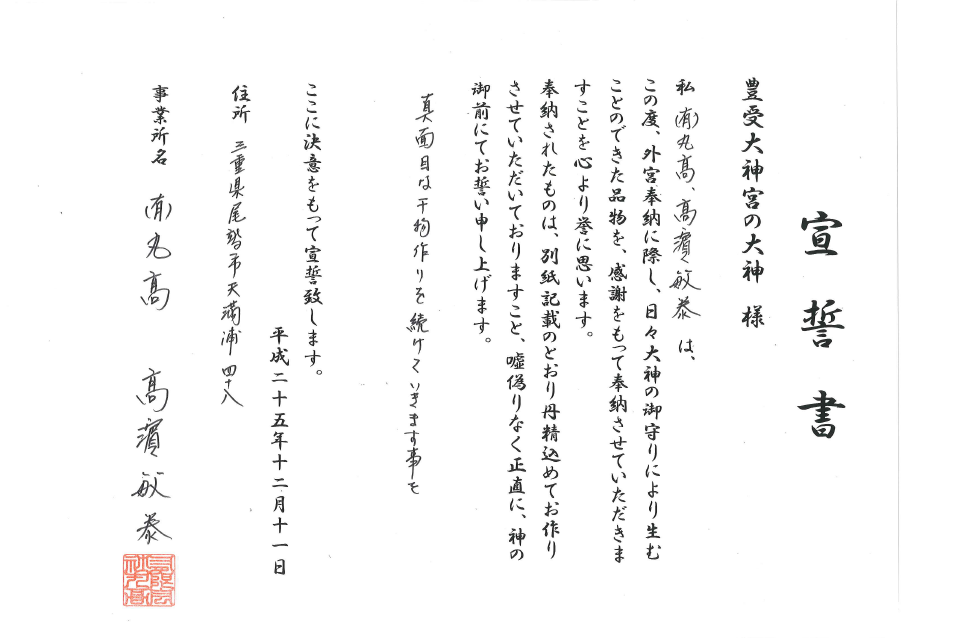 宣誓書
豊受大神宮の大神 様
私 (有)丸髙、髙濱敏泰 は、
この度、外宮奉納に際し、日々大神の御守りにより生む
ことのできた品物を、感謝をもって奉納させていただきま
すことを心より誉に思います。
奉納されたものは、別紙記載のとおり丹精込めてお作り
させていただいておりますこと、嘘偽りなく正直に、神の
御前にてお誓い申し上げます。
真面目な干物作りを続けていきます事を
ここに決意をもって宣誓致します。
平成二十五年十二月十一日
住所 三重県尾鷲市天満浦 四十八
事業所名 (有)丸髙 髙濱敏泰